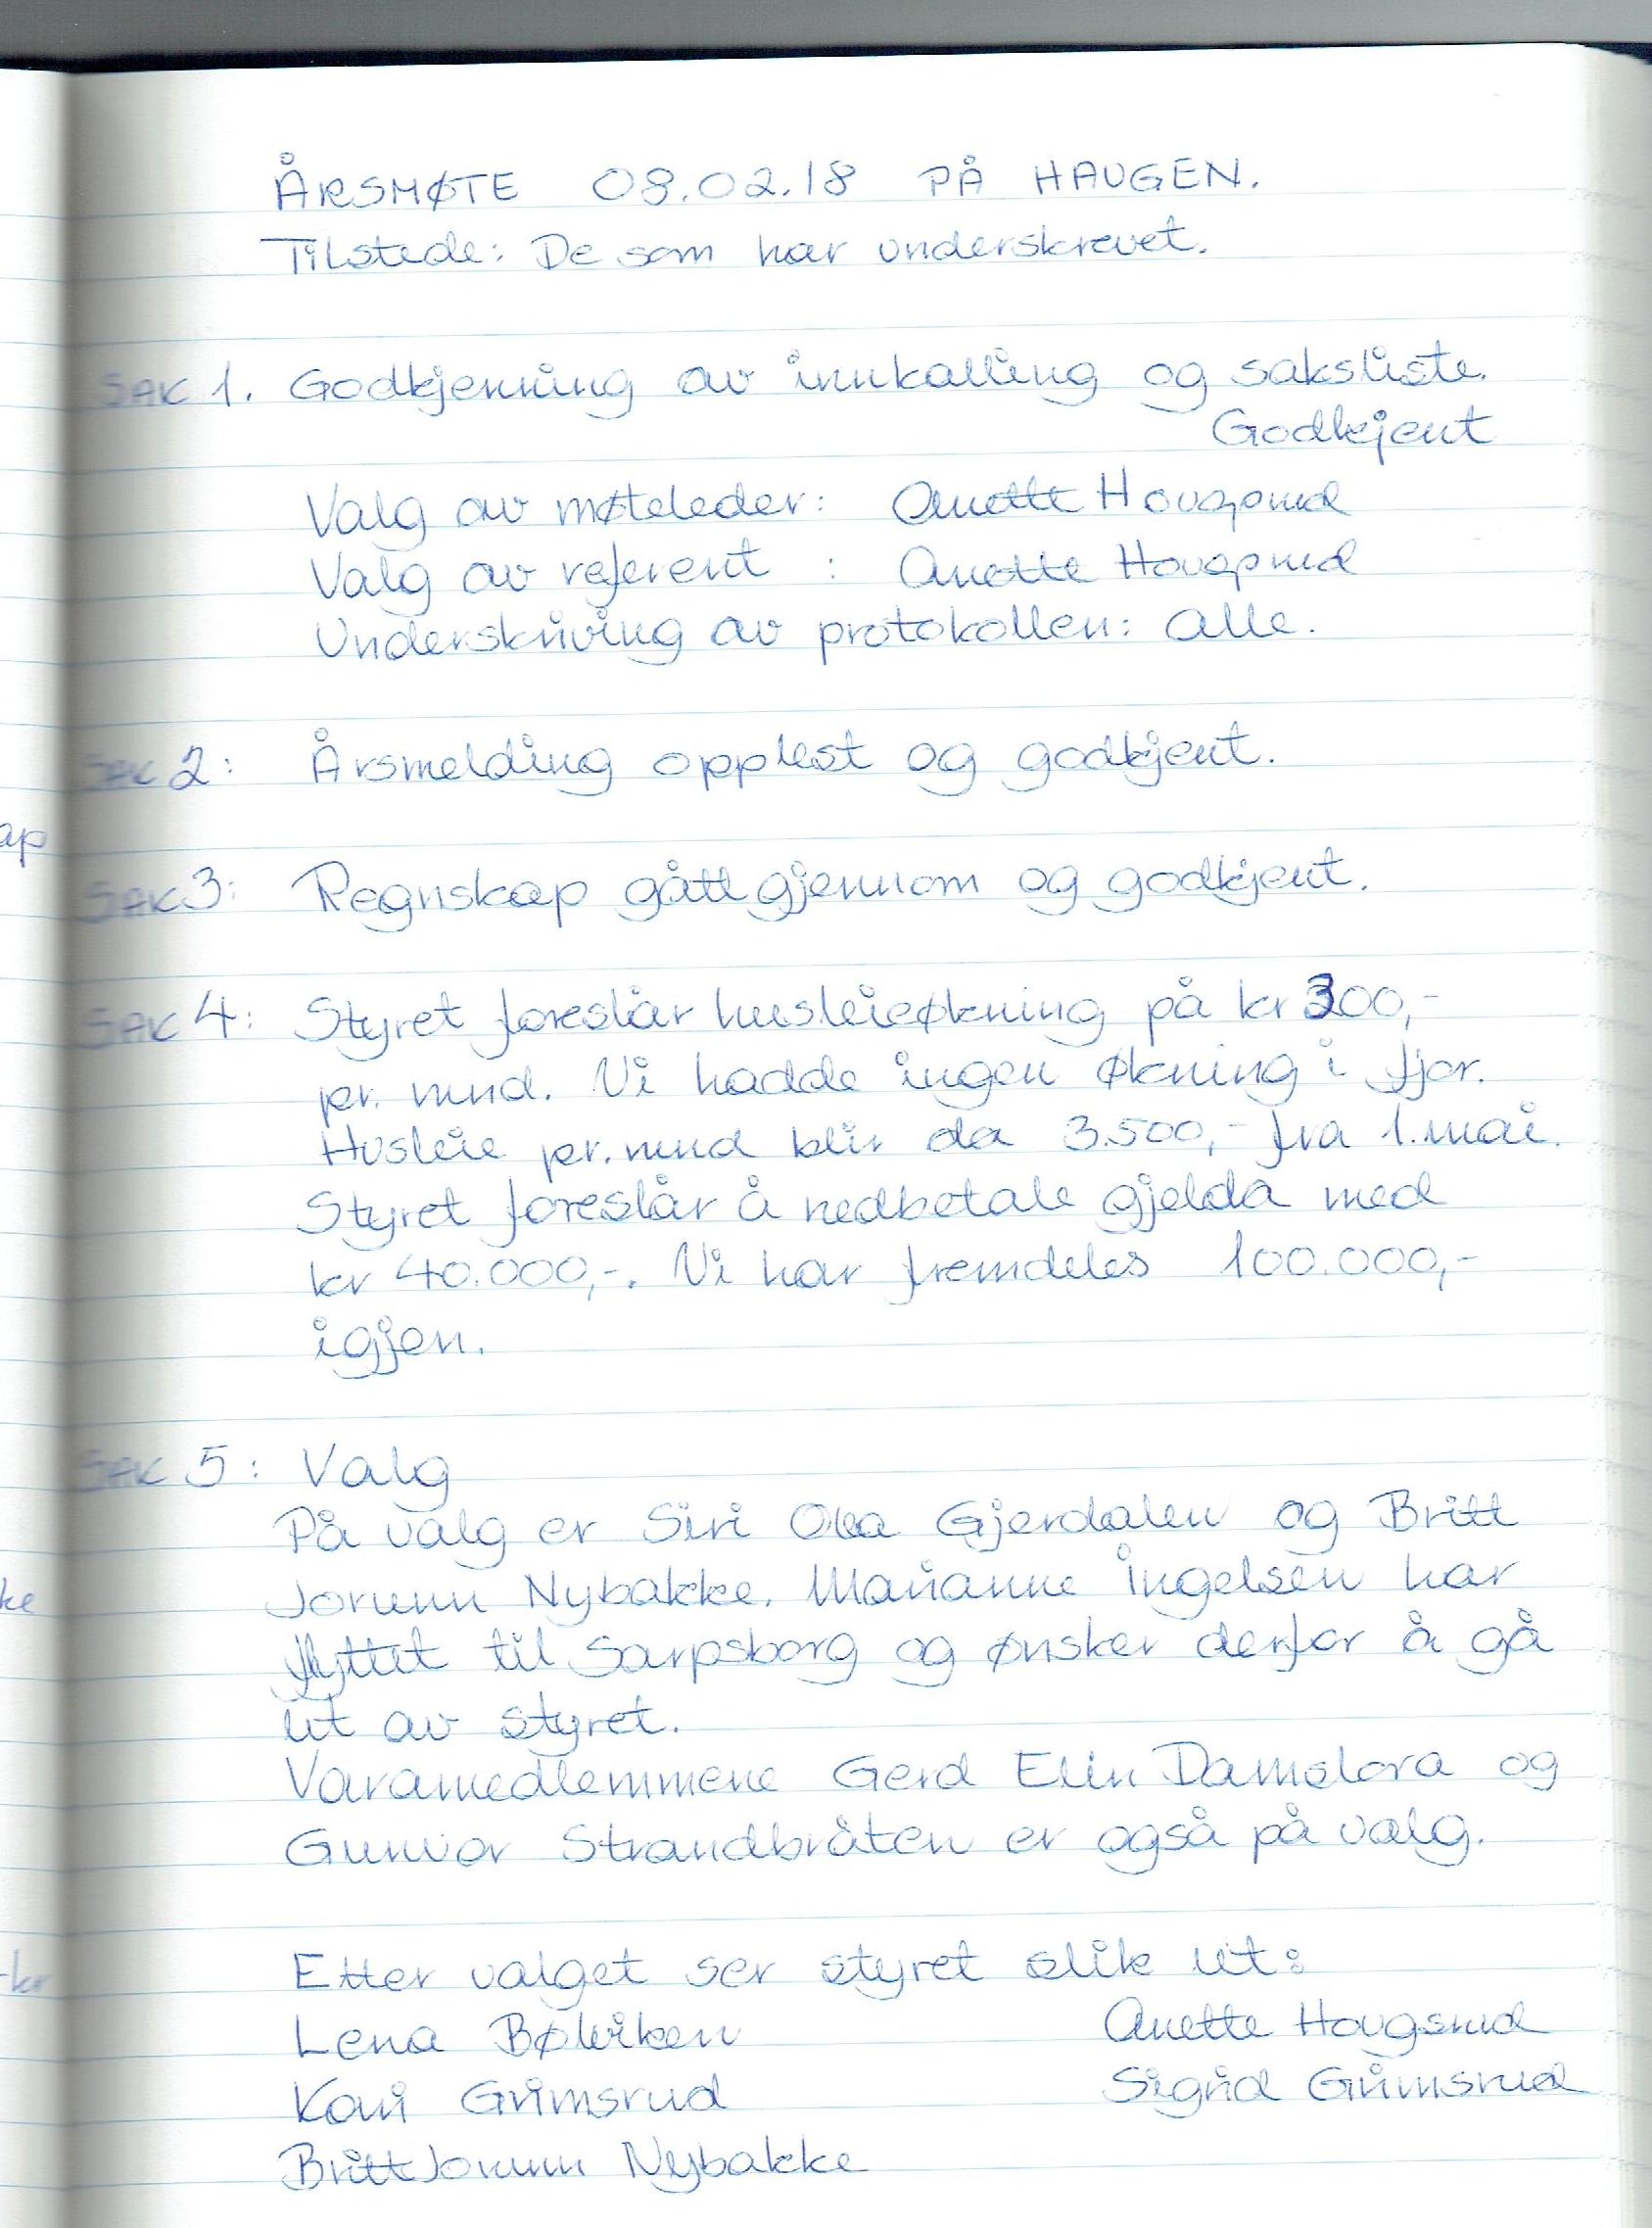 ÅRSMØTE 08.02.18 PÅ HAUGEN.
Tilstede: De som har underskrevet.
SAK 1. Godkjenning av innkalling og saksliste.
Godkjent
Valg av møteleder: Anette Hougsrud
Valg av referent : Anette Hougsrud
Underskriving av protokollen: Alle.
SAK 2: Årsmelding opplest og godkjent.
ap
SAK 3: Regnskap gått gjennom og godkjent.
SAK 4: Styret foreslår husleieøkning på kr 300,-
pr. mnd. Vi hadde ingen økning i fjor.
Husleie pr. mnd blir da 3.500,- fra 1. mai.
Styret foreslår å nedbetale gjelda med
kr 40.000,-. Vi har fremdeles 100.000,-
igjen.
SAK 5: Valg
På valg er Siri Gjerdalen og Britt
Jorunn Nybakke. Marianne Ingelsen har
ke
flyttet til Sarpsborg og ønsker derfor å gå
ut av styret.
Varamedlemmene Gerd Elin Damslora og
Gunvor Strandbråten er også på valg.
kr
Etter valget ser styret slik ut:
Lena Bølviken Anette Hougsrud
Kari Grimsrud Sigrid Grimsrud
Britt Jorunn Nybakke